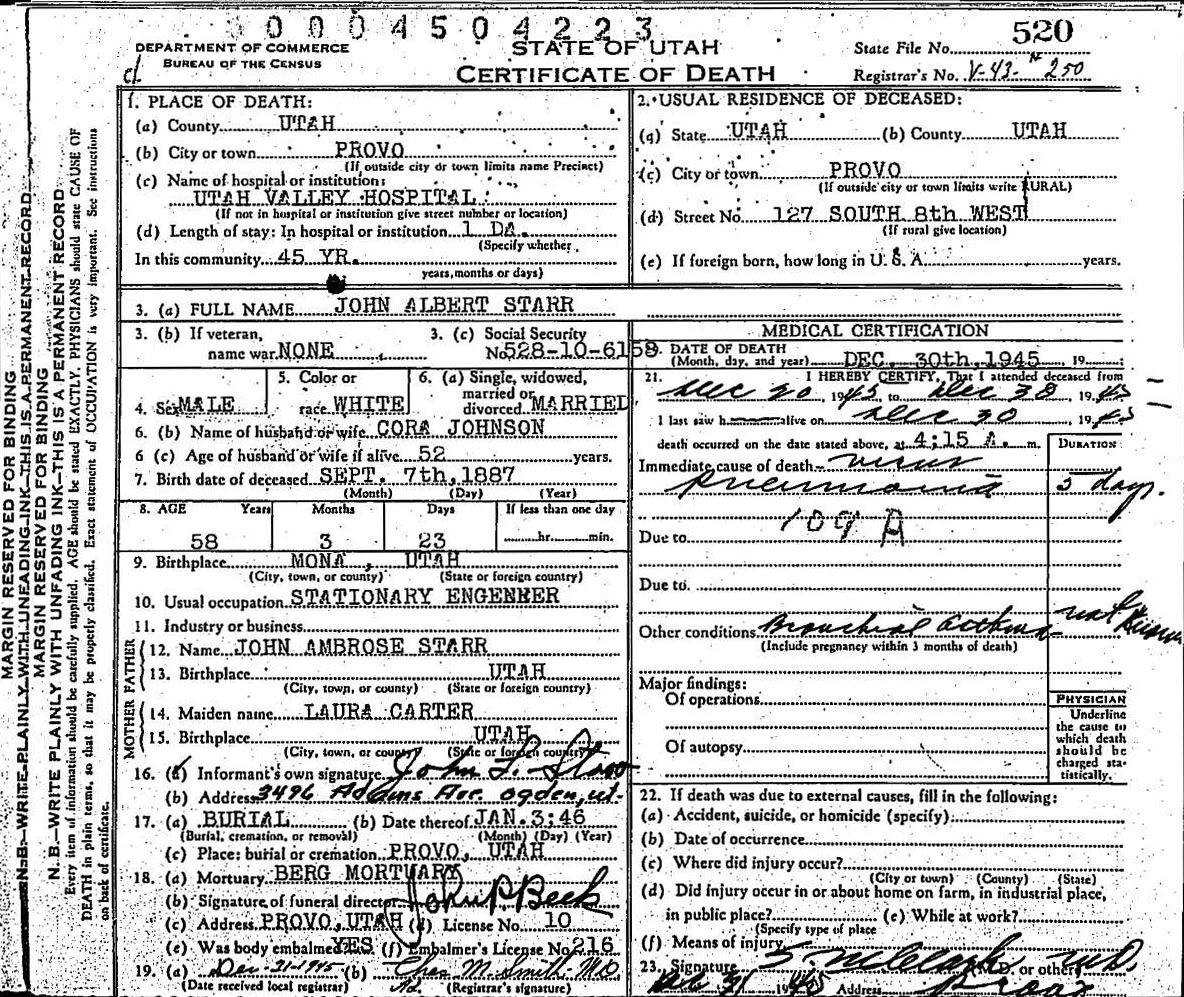 0004504223
520
DEPARTMENT OF COMMERCE
BUREAU OF THE CENSUS
STATE OF UTAH
CERTIFICATE OF DEATH
State File No.
Registrar's No. V-43- 250
1. PLACE OF DEATH:
(a) County UTAH
(b) City or town PROVO
(If outside city or town limits name Precinct)
(c) Name of hospital or institution:
UTAH VALLEY HOSPITAL
(If not in hospital or institution give street number or location)
(d) Length of stay: In hospital or institution 1 DA.
(Specify whether
In this community 45 YR.
years, months or days)
2. USUAL RESIDENCE OF DECEASED:
(a) State UTAH (b) County UTAH
(c) City or town PROVO
(If outside city or town limits write RURAL)
(d) Street No 127 SOUTH 8th WEST
(If rural give location)
(e) If foreign born, how long in U. S. A. years.
3. (a) FULL NAME JOHN ALBERT STARR
3. (b) If veteran,
name war NONE
3. (c) Social Security
No 528-10-6158
4. Sex MALE
5. Color or
race WHITE
6. (a) Single, widowed,
married or
divorced MARRIED
6. (b) Name of husband or wife CORA JOHNSON
6 (c) Age of husband or wife if alive 52 years.
7. Birth date of deceased SEPT. 7th, 1887
(Month) (Day) (Year)
8. AGE Years Months Days If less than one day
58 3 23 hr. min.
9. Birthplace MONA, UTAH
(City, town, or county) (State or foreign country)
10. Usual occupation STATIONARY ENGENEER
11. Industry or business
FATHER
12. Name JOHN AMBROSE STARR
13. Birthplace UTAH
(City, town, or county) (State or foreign country)
MOTHER
14. Maiden name LAURA CARTER
15. Birthplace UTAH
(City, town, or county) (State or foreign country)
16. (a) Informant's own signature John L. Starr
(b) Address 3496 Adams Ave. Ogden, ut.
17. (a) BURIAL (b) Date thereof JAN. 3:46
(Burial, cremation, or removal) (Month) (Day) (Year)
(c) Place: burial or cremation PROVO, UTAH
18. (a) Mortuary BERG MORTUARY
(b) Signature of funeral director John P Beck
(c) Address PROVO, UTAH (d) License No. 10
(e) Was body embalmed YES (f) Embalmer's License No 216
19. (a) Dec-21-1945 (b) Chas M. Smith, M.D
(Date received local registrar) (Registrar's signature)
MEDICAL CERTIFICATION
DATE OF DEATH
(Month, day, and year) DEC. 30th, 1945 19
21. I HEREBY CERTIFY, That I attended deceased from
Dec 20, 1945 to Dec 30, 1945
I last saw h alive on Dec 30, 1945
death occurred on the date stated above, at 4:15 A. m.
DURATION
Immediate cause of death virus
pneumonia 5 days.
109 A
Due to
Due to
Other conditions Bronchial asthma not known
(Include pregnancy within 3 months of death)
Major findings:
Of operations
Of autopsy
PHYSICIAN
Underline
the cause to
which death
should be
charged sta-
tistically.
22. If death was due to external causes, fill in the following:
(a) Accident, suicide, or homicide (specify)
(b) Date of occurrence
(c) Where did injury occur?
(City or town) (County) (State)
(d) Did injury occur in or about home on farm, in industrial place,
in public place? (e) While at work?
(Specify type of place
(f) Means of injury
23. Signature M.D. or other
Dec 31 1945 Address Provo
MARGIN RESERVED FOR BINDING
N.B.—WRITE PLAINLY WITH UNFADING INK—THIS IS A PERMANENT RECORD
MARGIN RESERVED FOR BINDING
N.B.—WRITE PLAINLY WITH UNFADING INK—THIS IS A PERMANENT RECORD
Every item of information should be carefully supplied. AGE should be stated EXACTLY. PHYSICIANS should state CAUSE OF
DEATH in plain terms, so that it may be properly classified. Exact statement of OCCUPATION is very important. See instructions
on back of certificate.